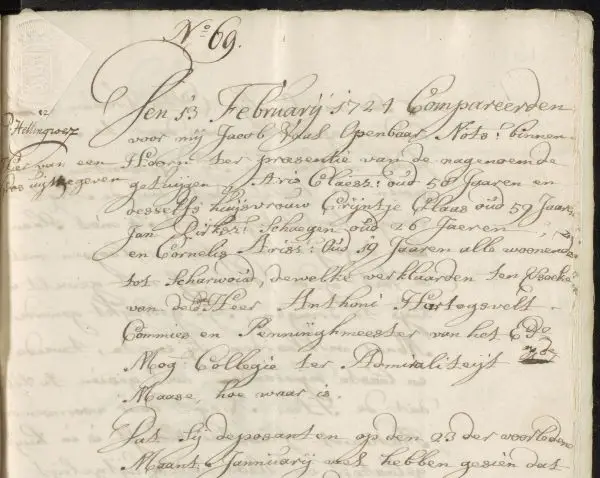 No 69.
Den 13 Februarij 1721 Compareerden
voor mij Jacob Bral Openbaar Nots: binnen
Hoorn ter præsentie van de nagenoemde
getuijgen, Aris Claesz: oud 58 Jaaren en
desselfs huijsvrouw Trijntje Claas oud 59 Jaaren
Jan Dirksz: Schaegen oud 26 Jaeren,
en Cornelis Arisz: oud 19 Jaaren alle woonende
tot Scharwoud, dewelke verklaarden ten versoeke
van de Heer Anthoni Hartogsvelt
Commies en Penninghmeester van het Ed
Mog: Collegie ter Admiraliteijt op de
Maase, hoe waar is.
Dat sij deposanten op den 23 der voorledene
Maant Jannuarij wel hebben gesien dat
Hier van een
uijtgegeven